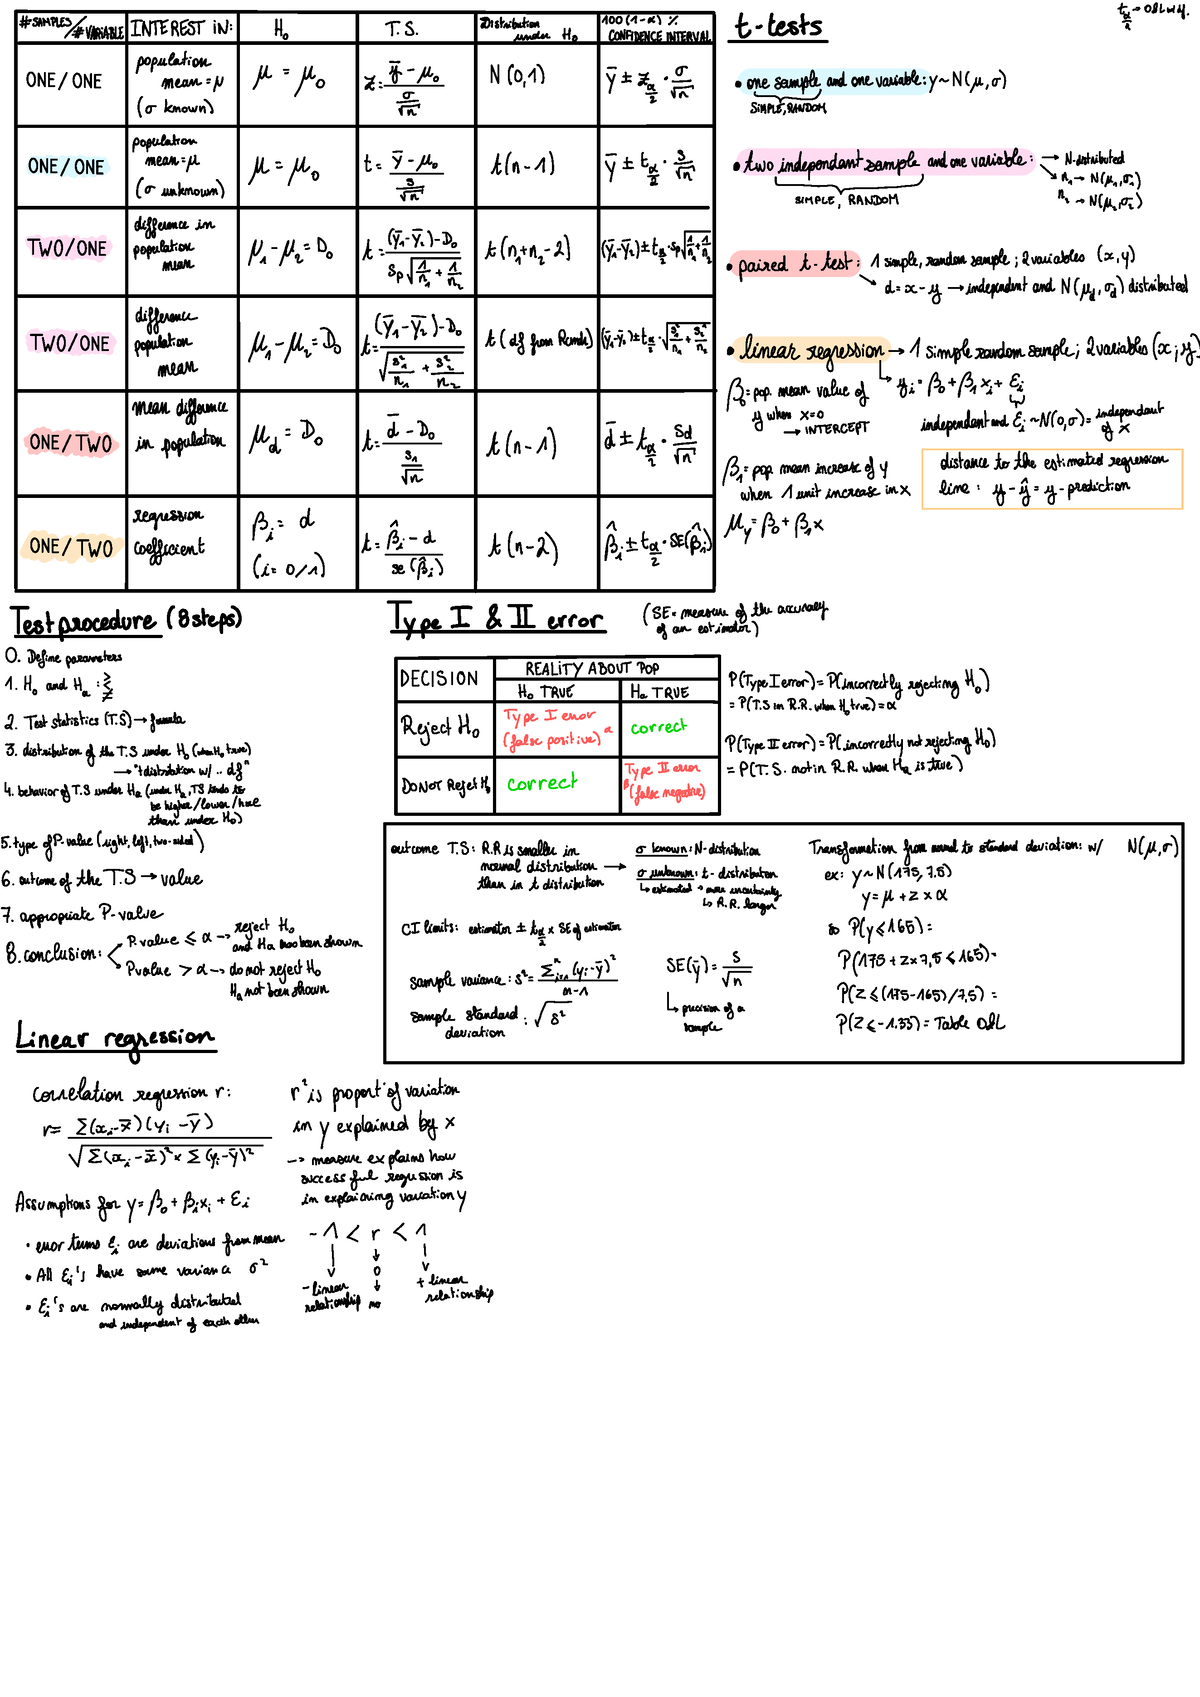 #SAMPLES / #VARIABLE | INTEREST IN: | H₀ | T.S. | Distribution under H₀ | 100(1-α) % CONFIDENCE INTERVAL
ONE/ONE | population mean = μ (σ known) | μ = μ₀ | z = (ȳ - μ₀) / (σ/√n) | N(0,1) | ȳ ± z_α/2 · σ/√n
ONE/ONE | population mean = μ (σ unknown) | μ = μ₀ | t = (ȳ - μ₀) / (s/√n) | t(n-1) | ȳ ± t_α/2 · s/√n
TWO/ONE | difference in population mean | μ₁ - μ₂ = D₀ | t = ((ȳ₁-ȳ₂)-D₀) / (sp√(1/n₁ + 1/n₂)) | t(n₁+n₂-2) | (ȳ₁-ȳ₂) ± t_α/2 · sp√(1/n₁ + 1/n₂)
TWO/ONE | difference population mean | μ₁ - μ₂ = D₀ | t = ((ȳ₁-ȳ₂)-D₀) / √(s₁²/n₁ + s₂²/n₂) | t(df from Rcmdr) | (ȳ₁-ȳ₂) ± t_α/2 · √(s₁²/n₁ + s₂²/n₂)
ONE/TWO | mean difference in population | μd = D₀ | t = (d̄ - D₀) / (s₁/√n) | t(n-1) | d̄ ± t_α/2 · sd/√n
ONE/TWO | regression coefficient | βᵢ = d (i = 0/1) | t = (β̂ᵢ - d) / se(β̂ᵢ) | t(n-2) | β̂ᵢ ± t_α/2 · SE(β̂ᵢ)
t_α/2 →
t-tests
• one sample and one variable: y ~ N(μ,σ)
SIMPLE, RANDOM
• two independant sample and one variable: → N-distributed
n₁ → N(μ₁,σ₁)
n₂ → N(μ₂,σ₂)
SIMPLE, RANDOM
• paired t-test: 1 simple, random sample; 2 variables (x,y)
d = x - y → independent and N(μd,σd) distributed
• linear regression → 1 simple random sample; 2 variables (x;y)
yᵢ = β₀ + β₁xᵢ + εᵢ
independent and εᵢ ~ N(0,σ) = independant of x
β₀ = pop. mean value of
y when x=0
→ INTERCEPT
β₁ = pop mean increase of y
when 1 unit increase in x
μy = β₀ + β₁x
distance to the estimated regression
line: y - ŷ = y - prediction
Test procedure (8 steps)
0. Define parameters
1. H₀ and Hₐ : > < ≠
2. Test statistics (T.S) → formula
3. distribution of the T.S under H₀ (when H₀ true)
→ "t distribution w/ .. df"
4. behavior of T.S under Hₐ (under Hₐ, TS tends to
be higher/lower/
than under H₀)
5. type of P-value (right, left, two-sided)
6. outcome of the T.S → value
7. appropriate P-value
8. conclusion:
P.value ⩽ α → reject H₀
and Ha has been shown
Pvalue > α → do not reject H₀
Hₐ not been shown
Type I & II error
(SE = measure of the accuracy
of an estimator)
DECISION | REALITY ABOUT POP
H₀ TRUE | Ha TRUE
Reject H₀ | Type I error (false positive) α | correct
Do NOT Reject H₀ | correct | Type II error β (false negative)
P(Type I error) = P(incorrectly rejecting H₀)
= P(T.S in R.R. when H₀ true) = α
P(Type II error) = P(incorrectly not rejecting H₀)
= P(T.S. not in R.R. when Hₐ is true)
outcome T.S: R.R is smaller in
normal distribution →
than in t distribution
σ known: N-distribution
σ unknown: t-distribution
↳ estimated → more uncertainty
↳ R.R. larger
CI limits: estimator ± t_α/2 × SE of estimator
sample variance: s² = Σⁿᵢ₌₁(yᵢ-ȳ)² / n-1
sample standard deviation: √s²
SE(ȳ) = s/√n
↳ precision of a
sample
Transformation from normal to standard deviation: w/ N(μ,σ)
ex: y ~ N(175, 7.5)
y = μ + z × α
so P(y ⩽ 165) =
P(175 + z × 7,5 ⩽ 165) =
P(Z ⩽ (175-165)/7,5) =
P(Z ⩽ -1.33) = Table
Linear regression
Correlation regression r:
r = Σ(xᵢ-x̄)(yᵢ-ȳ) / √(Σ(xᵢ-x̄)² × Σ(yᵢ-ȳ)²)
r² is proport° of variation
in y explained by x
→ measure explains how
successful regression is
in explaining variation y
Assumptions for y = β₀ + βᵢxᵢ + εᵢ
• error terms εᵢ are deviations from mean
• All εᵢ's have same variance σ²
• εᵢ's are normally distributed
and independent of each other
-1 < r < 1
- linear relationship
0
no
+ linear relationship